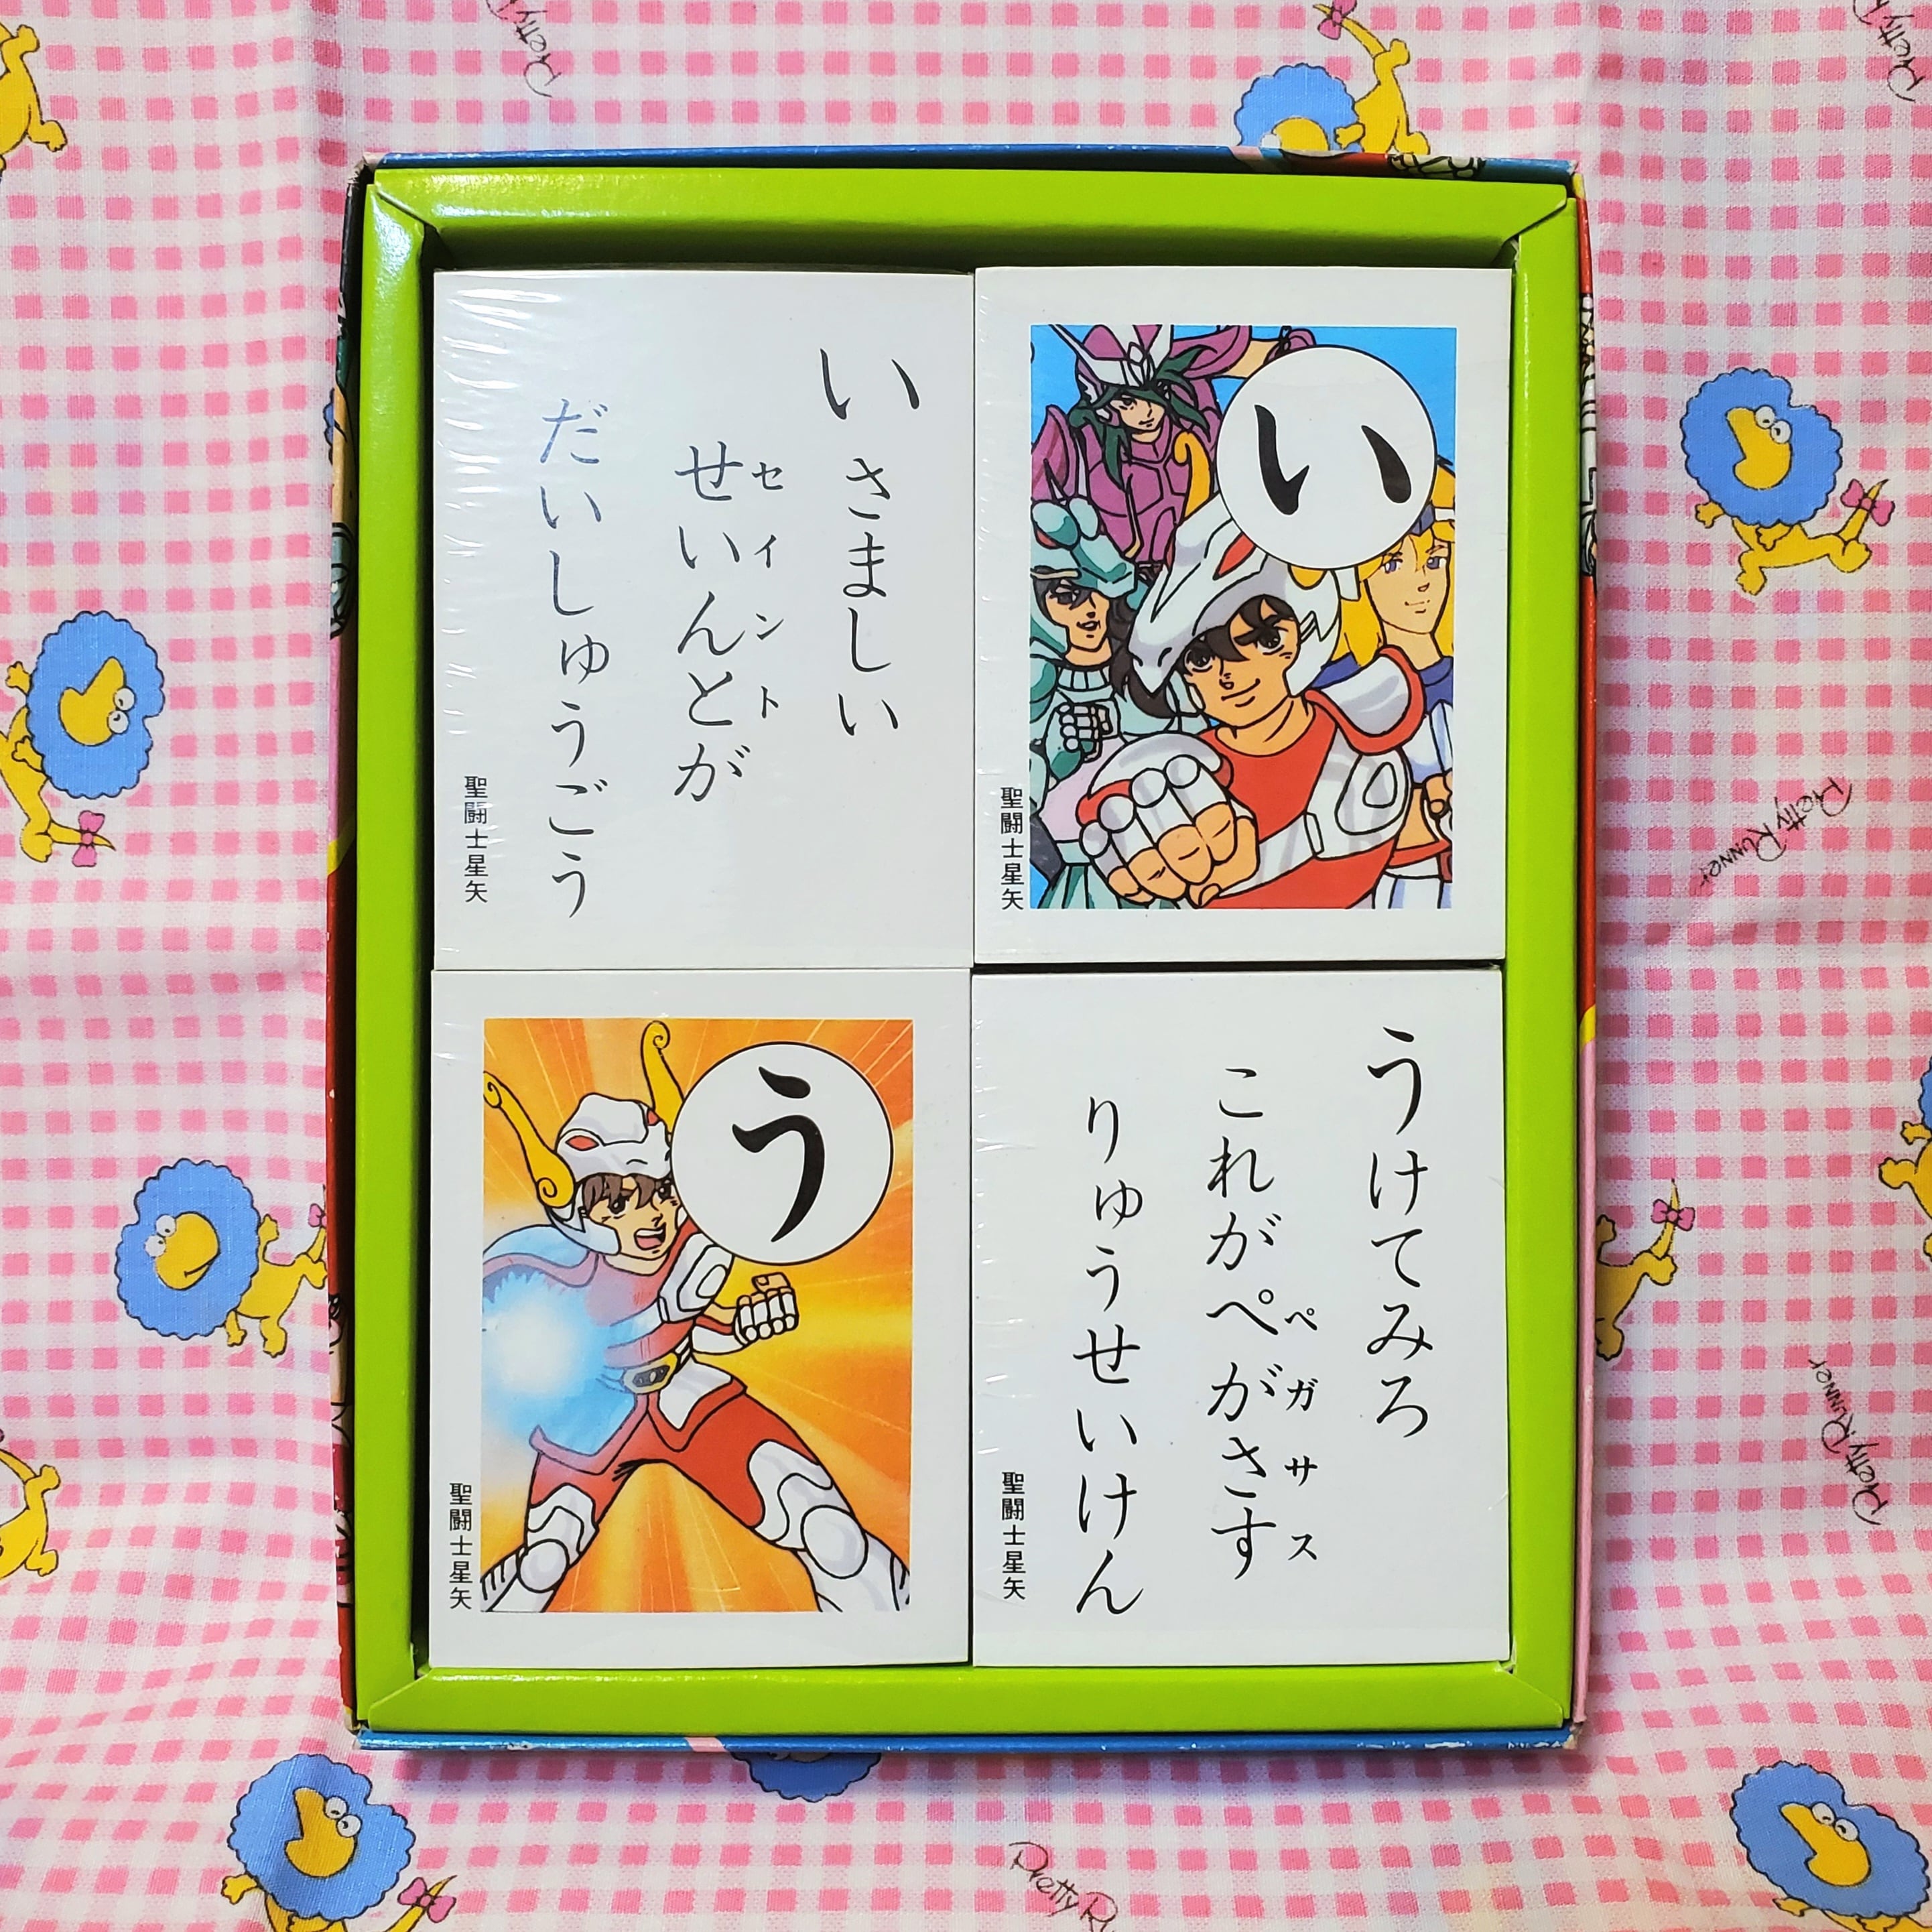 いさましい
せいんとが
セイント
だいしゅうごう
聖闘士星矢
い
聖闘士星矢
う
聖闘士星矢
うけてみろ
これがぺがさす
ペガサス
りゅうせいけん
聖闘士星矢
Pretty Runner
Pretty Runner
Pretty
Pretty
Pretty Ru